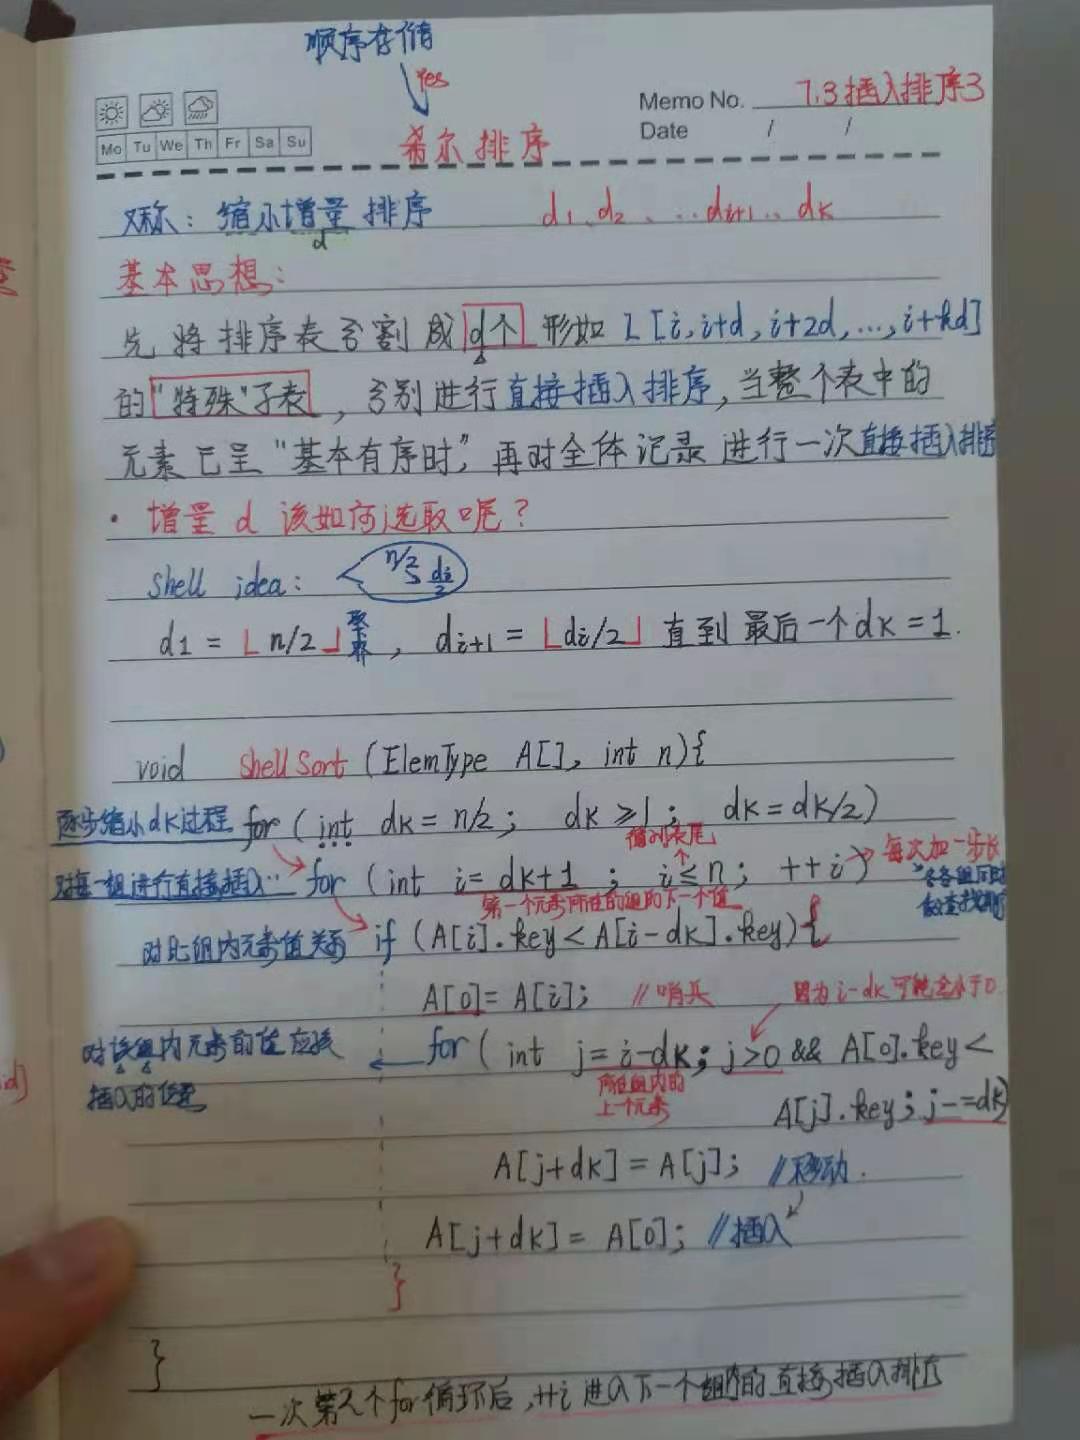 顺序存储
Yes
Memo No. 7.3插入排序3
Date / /
Mo Tu We Th Fr Sa Su
希尔排序
又称：缩小增量排序 d1、d2、...di+1.. dk
d
基本思想：
先将排序表分割成d个形如L[i,i+d,i+2d,...,i+kd]
的"特殊"子表，分别进行直接插入排序，当整个表中的
元素已呈"基本有序时"，再对全体记录进行一次直接插入排序
· 增量d该如何选取呢？
shell idea: n/2 di/2
d1 = ⌊n/2⌋, di+1 = ⌊di/2⌋ 直到最后一个dk=1.
void ShellSort (ElemType A[], int n){
逐步缩小dk过程 for (int dk = n/2; dk ≥1; dk = dk/2)
值到表尾
对每一组进行直接插入… for (int i = dk+1; i≤n; ++i) 每次加一步长
第一个元素所在的组的下一个值
对比组内元素值关系 if (A[i].key < A[i-dk].key){
A[0]= A[i]; //哨兵 因为i-dk可能会小于0
对该组内元素前值应该 for (int j= i-dk; j>0 && A[0].key <
插入的位置 所在组内的
上一个元素 A[j].key; j-=dk)
A[j+dk] = A[j]; //移动.
A[j+dk] = A[0]; //插入
}
}
一次第2个for循环后，++i进入下一个组内的直接插入排序